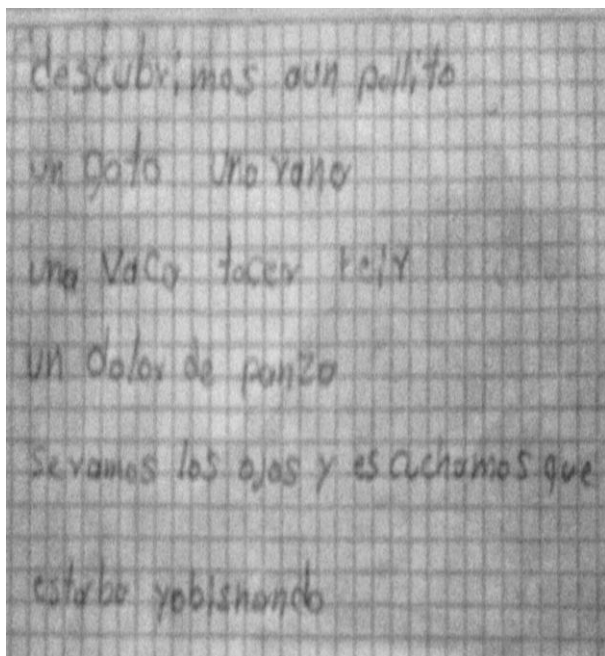 descubrimos aun pollito
un gato una rana
una vaca tocer reir
un dolor de panza
seramos los ojos y esachamos que
estaba yobisnando